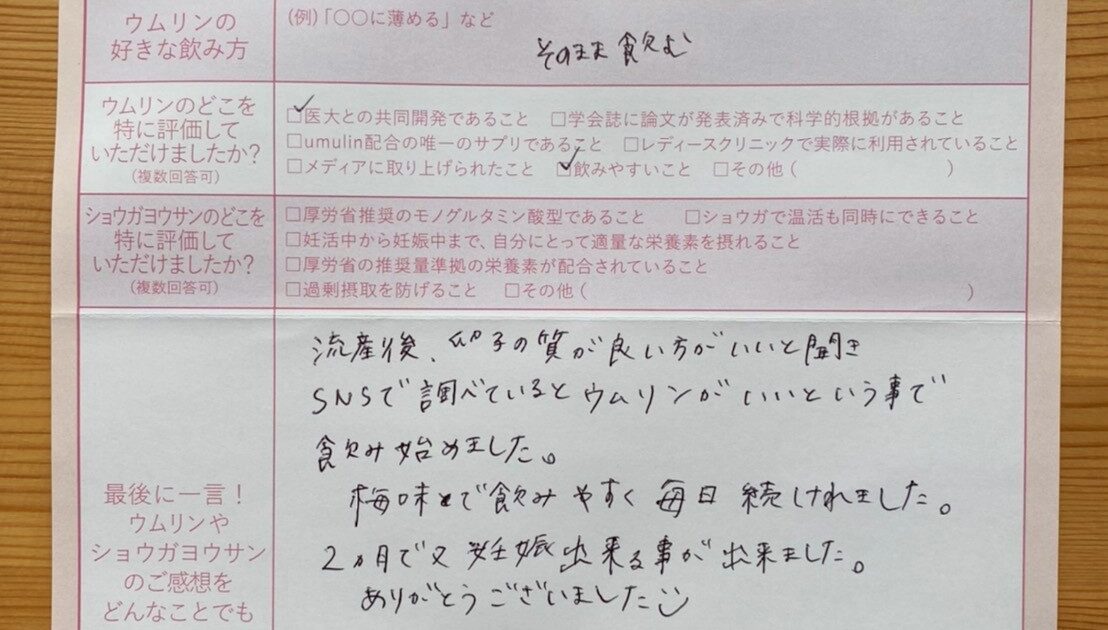 ウムリンの
好きな飲み方
(例)「〇〇に薄める」など
そのまま飲む
ウムリンのどこを
特に評価して
いただけましたか?
(複数回答可)
☑医大との共同開発であること □学会誌に論文が発表済みで科学的根拠があること
□umulin配合の唯一のサプリであること □レディースクリニックで実際に利用されていること
□メディアに取り上げられたこと ☑飲みやすいこと □その他( )
ショウガヨウサンのどこを
特に評価して
いただけましたか?
(複数回答可)
□厚労省推奨のモノグルタミン酸型であること □ショウガで温活も同時にできること
□妊活中から妊娠中まで、自分にとって適量な栄養素を摂れること
□厚労省の推奨量準拠の栄養素が配合されていること
□過剰摂取を防げること □その他( )
最後に一言!
ウムリンや
ショウガヨウサン
のご感想を
どんなことでも
流産後、卵子の質が良い方がいいと聞き
SNSで調べているとウムリンがいいという事で
飲み始めました。
梅味で飲みやすく毎日続けれました。
2ヵ月で又妊娠出来る事が出来ました。
ありがとうございました